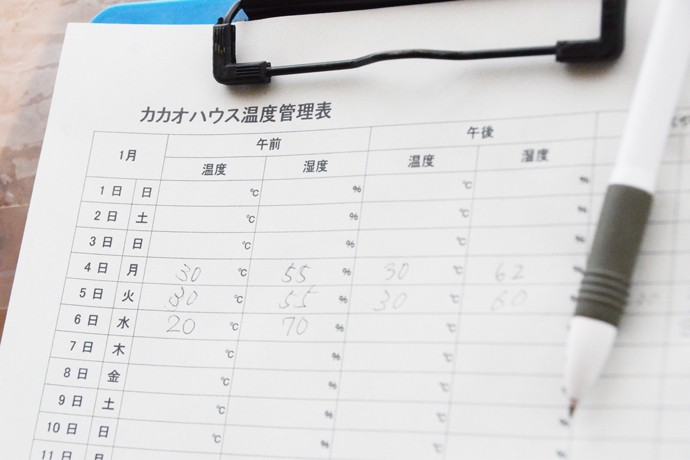 カカオハウス温度管理表
1月 午前 午後
温度 湿度 温度 湿度
1日 日 ℃ % ℃ %
2日 土 ℃ % ℃ %
3日 日 ℃ % ℃ %
4日 月 30 ℃ 55 % 30 ℃ 62 %
5日 火 30 ℃ 55 % 30 ℃ 60 %
6日 水 20 ℃ 70 % ℃ %
7日 木 ℃ % ℃
8日 金 ℃ % ℃
9日 土 ℃ % ℃ %
10日 日 ℃ % ℃
11日 月